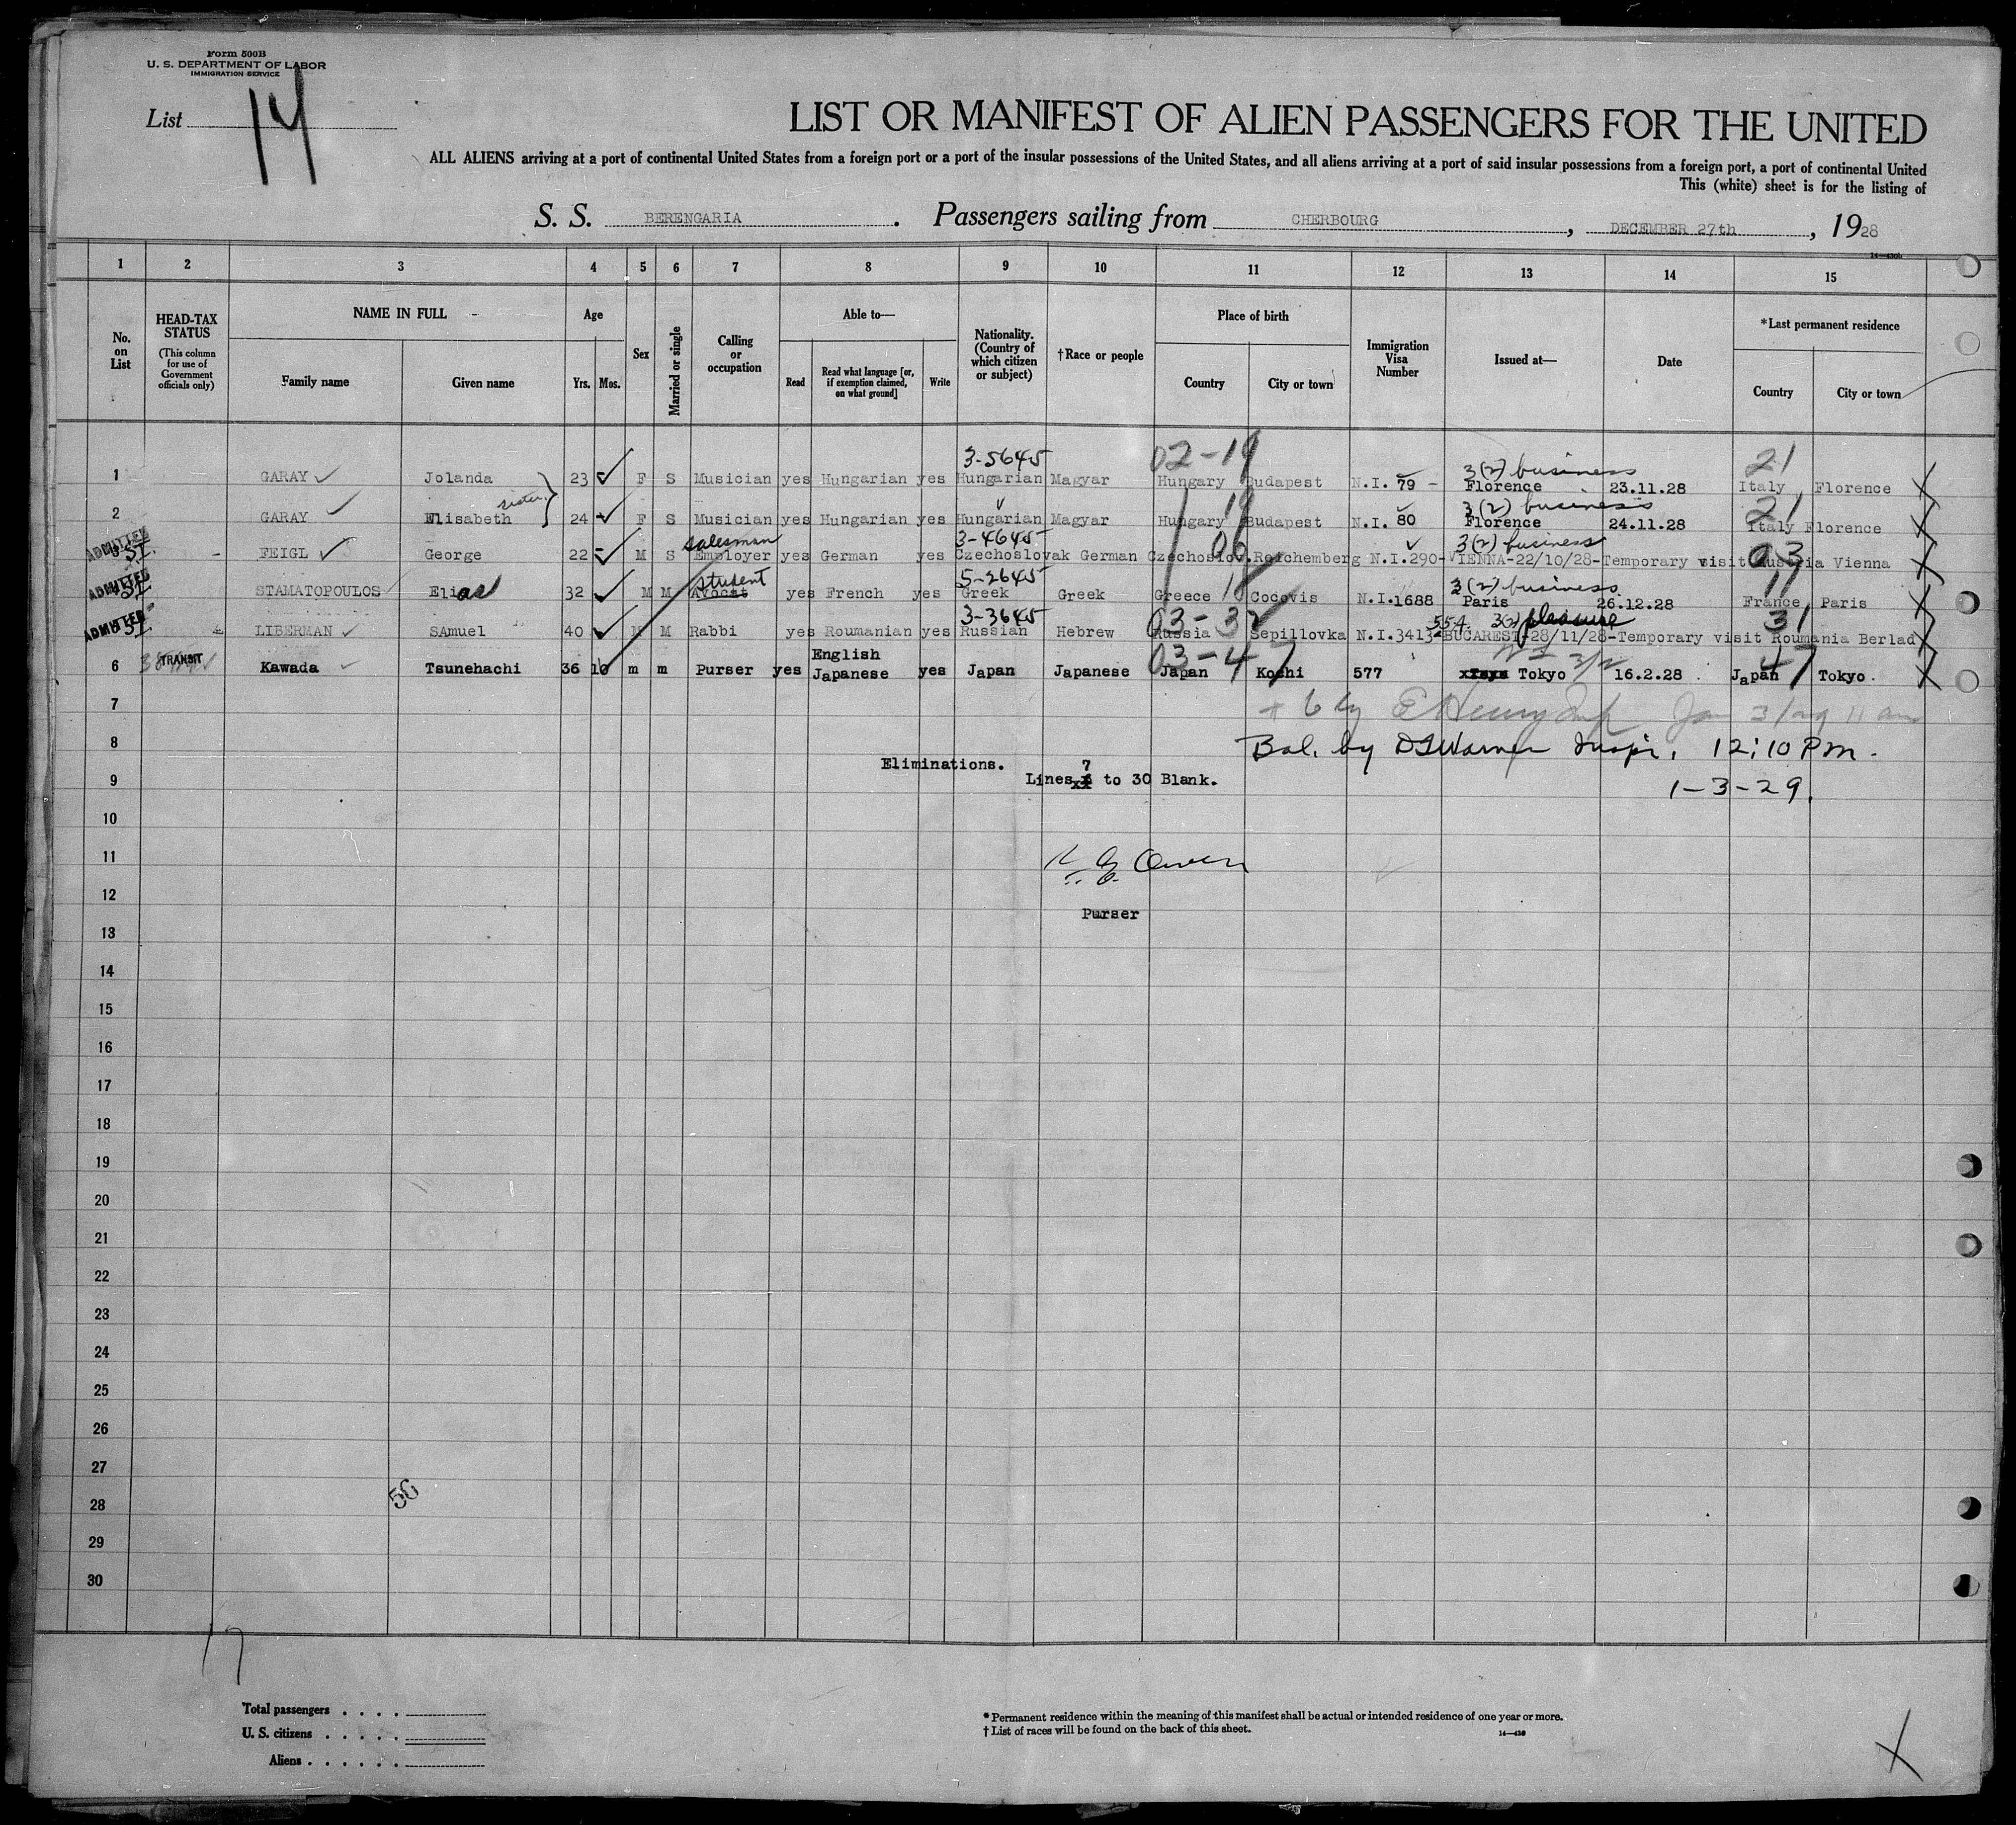 Form 500B
U. S. DEPARTMENT OF LABOR
IMMIGRATION SERVICE
List 14
LIST OR MANIFEST OF ALIEN PASSENGERS FOR THE UNITED
ALL ALIENS arriving at a port of continental United States from a foreign port or a port of the insular possessions of the United States, and all aliens arriving at a port of said insular possessions from a foreign port, a port of continental United
This (white) sheet is for the listing of
S. S. BERENGARIA. Passengers sailing from CHERBOURG, DECEMBER 27th, 1928
14—430b
1 2 3 4 5 6 7 8 9 10 11 12 13 14 15
No. on List
HEAD-TAX STATUS (This column for use of Government officials only)
NAME IN FULL
Family name Given name
Age
Yrs. Mos.
Sex
Married or single
Calling or occupation
Able to—
Read
Read what language [or, if exemption claimed, on what ground]
Write
Nationality. (Country of which citizen or subject)
†Race or people
Place of birth
Country City or town
Immigration Visa Number
Issued at—
Date
*Last permanent residence
Country City or town
3-5645 02-19 3(2) business 21
1 GARAY Jolanda 23 F S Musician yes Hungarian yes Hungarian Magyar Hungary Budapest N.I. 79 - Florence 23.11.28 Italy Florence
sister 19 3(2) business 21
2 GARAY Elisabeth 24 F S Musician yes Hungarian yes Hungarian Magyar Hungary Budapest N.I. 80 Florence 24.11.28 Italy Florence
ADMITTED salesman 3-4645 06 3(2) business 03
3 SI. FEIGL George 22 M S Employer yes German yes Czechoslovak German Czechoslov. Reichemberg N.I.290-VIENNA-22/10/28-Temporary visit Austria Vienna
ADMITTED student 5-2645 18 3(2) business 11
4 SI STAMATOPOULOS Elias 32 M M Avocat yes French yes Greek Greek Greece Cocovis N.I.1688 Paris 26.12.28 France Paris
ADMITTED 3-3645 03-32 554 3(2) pleasure 31
5 SI. LIBERMAN SAmuel 40 M M Rabbi yes Roumanian yes Russian Hebrew Russia Sepillovka N.I.3413 BUCAREST-28/11/28-Temporary visit Roumania Berlad
TRANSIT English 03-47 3/2 47
6 Kawada Tsunehachi 36 10 m m Purser yes Japanese yes Japan Japanese Japan Kochi 577 Tokyo 16.2.28 Japan Tokyo.
7 6 by E Henry Insp Jan 3/29 11 am
8 Bal. by DSWarner Inspr. 12:10 P.m.
Eliminations.
9 Lines 7 to 30 Blank. 1-3-29.
10
11 Owen
12
Purser
13
14
15
16
17
18
19
20
21
22
23
24
25
26
27
28 56
29
30
17
Total passengers . . . .
U. S. citizens . . . . .
Aliens . . . . . .
* Permanent residence within the meaning of this manifest shall be actual or intended residence of one year or more.
† List of races will be found on the back of this sheet.
14—430
X